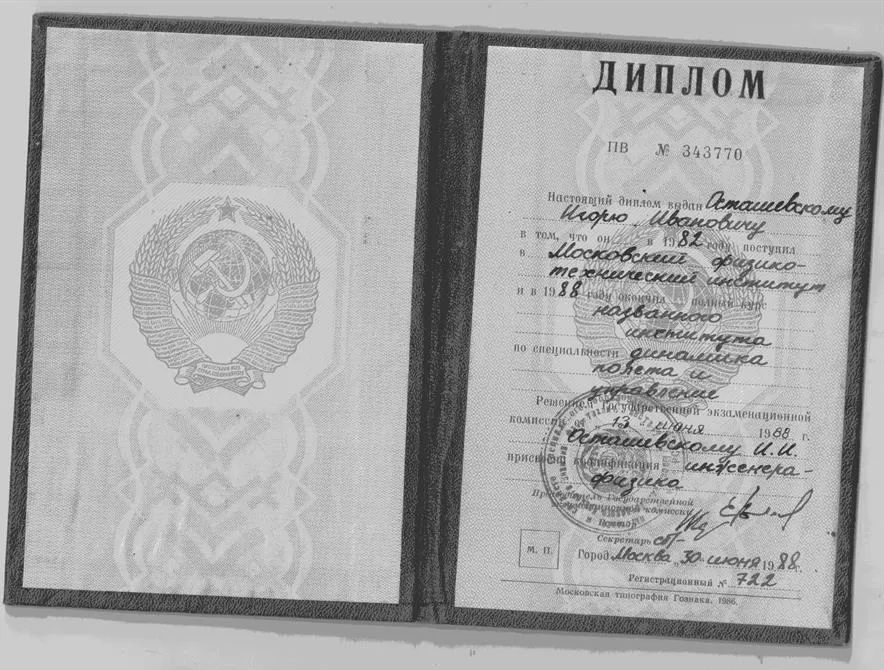 ДИПЛОМ
ПВ № 343770
Настоящий диплом выдан Осташевскому
Игорю Ивановичу
в том, что он в 1982 году поступил
в Московский физико-
технический институт
и в 1988 году окончил полный курс
названного
института
по специальности динамика
полета и
управление
Решением Государственной экзаменационной
комиссии от 13 июня 1988 г.
Осташевскому И.И.
присвоена квалификация инженера-
физика
Председатель Государственной
экзаменационной комиссии
Секретарь
М. П.
Город Москва 30 июня 1988 г.
Регистрационный № 722
Московская типография Гознака. 1986.